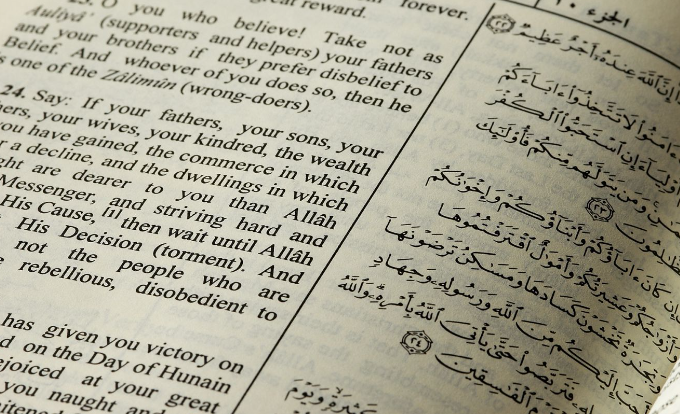 great reward.
23. O you who believe! Take not as
Auliyâ' (supporters and helpers) your fathers
and your brothers if they prefer disbelief to
Belief. And whoever of you does so, then he
is one of the Zâlimûn (wrong-doers).
24. Say: If your fathers, your sons, your
your wives, your kindred, the wealth
you have gained, the commerce in which
a decline, and the dwellings in which
are dearer to you than Allâh
Messenger, and striving hard and
His Cause, [1] then wait until Allâh
His Decision (torment). And
not the people who are
rebellious, disobedient to
has given you victory on
on the Day of Hunain
at your great
you naught and
forever.
الجزء ١٠
إِنَّ ٱللَّهَ عِندَهُۥٓ أَجْرٌ عَظِيمٌ ٢٢
ءَامَنُوا۟ لَا تَتَّخِذُوٓا۟ ءَابَآءَكُمْ
أَوْلِيَآءَ إِنِ ٱسْتَحَبُّوا۟ ٱلْكُفْرَ
وَمَن يَتَوَلَّهُم مِّنكُمْ فَأُو۟لَٰٓئِكَ
٢٣
كَانَ ءَابَآؤُكُمْ وَأَبْنَآؤُكُمْ وَإِخْوَٰنُكُمْ
وَأَزْوَٰجُكُمْ وَعَشِيرَتُكُمْ وَأَمْوَٰلٌ ٱقْتَرَفْتُمُوهَا
وَتِجَٰرَةٌ تَخْشَوْنَ كَسَادَهَا وَمَسَٰكِنُ تَرْضَوْنَهَآ
إِلَيْكُم مِّنَ ٱللَّهِ وَرَسُولِهِۦ وَجِهَادٍ
فَتَرَبَّصُوا۟ حَتَّىٰ يَأْتِىَ ٱللَّهُ بِأَمْرِهِۦ وَٱللَّهُ
ٱلْفَٰسِقِينَ ٢٤
كَثِيرَةٍ وَيَوْمَ